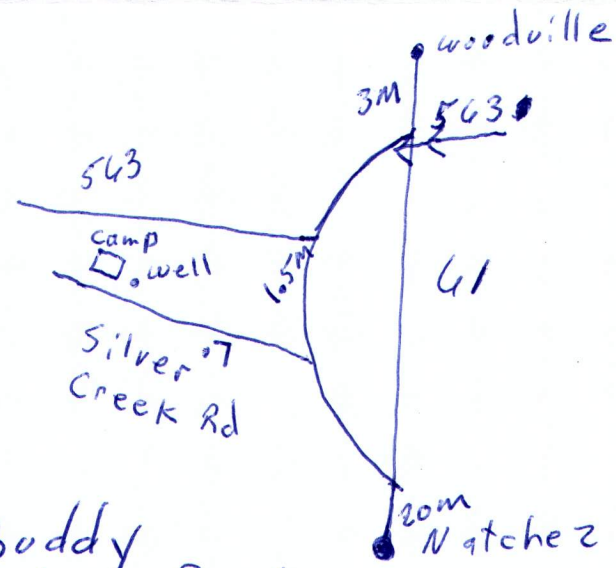 woodville
3M
563
563
camp
well
1.5M
61
Silver .7
Creek Rd
20m
Natchez
buddy